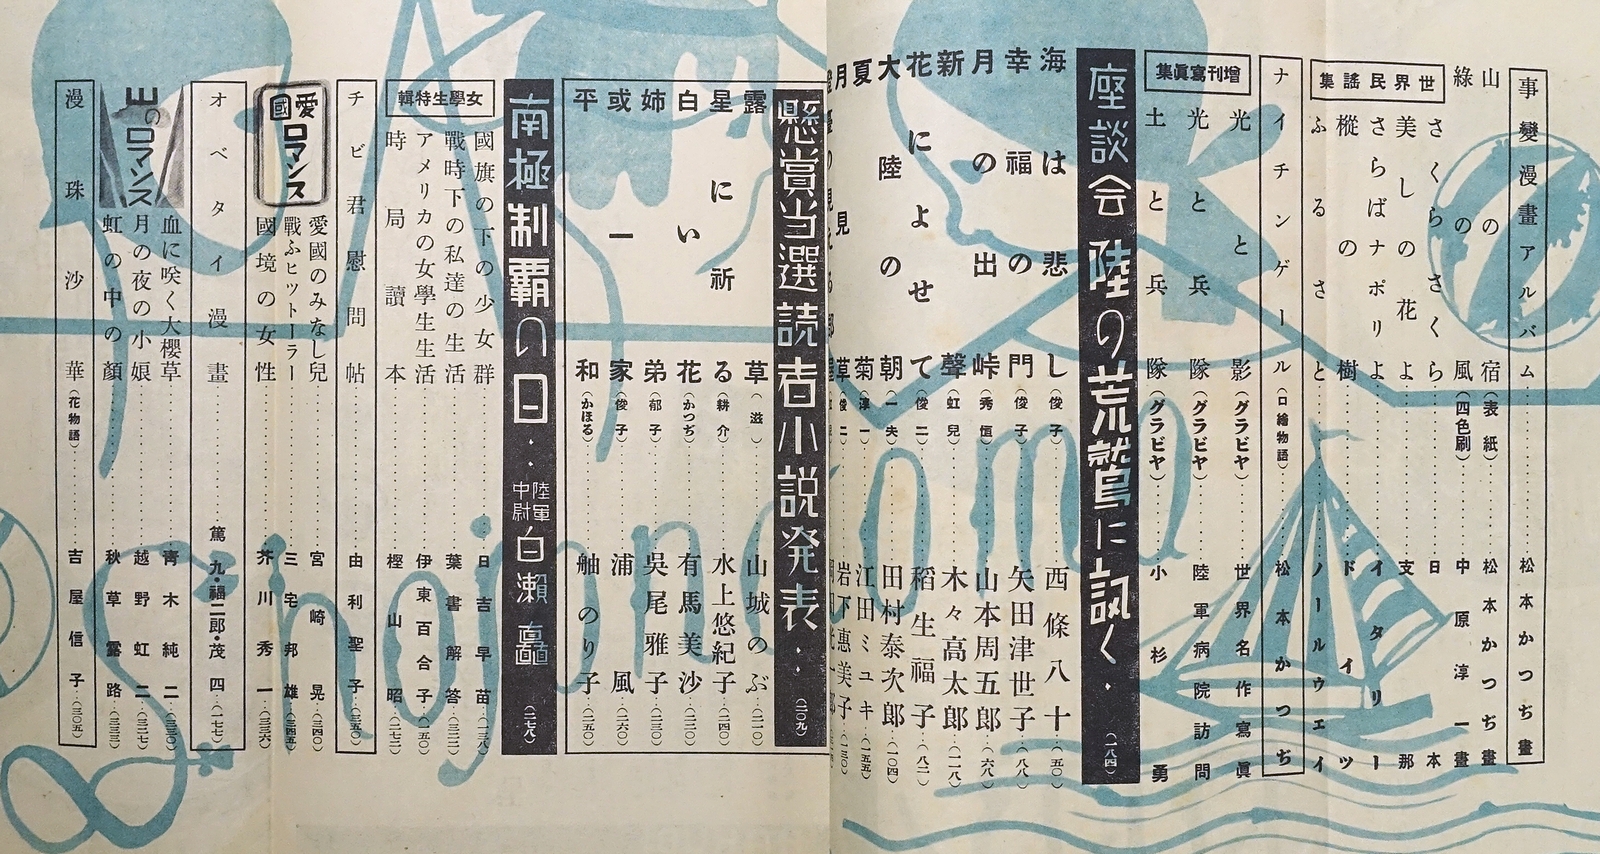 事變漫畫アルバム 松本かつぢ畫
山の宿（表紙） 松本かつぢ畫
綠の風（四色刷） 中原淳一畫
世界民謠集
さくらさくら 日本
美しの花よ 支那
さらばナポリよ イタリー
樅の樹 ドイツ
ふるさと ノールウェイ
ナイチンゲール（口繪物語） 松本かつぢ
增刊寫眞集
光と影（グラビヤ） 世界名作寫眞
光と兵隊（グラビヤ） 陸軍病院訪問
土と兵隊（グラビヤ） 小杉勇
座談会 陸の荒鷲に訊く（一八四）
海は悲し（俊子） 西條八十（五〇）
幸福の門（俊子） 矢田津世子（八八）
月の出峠（秀恒） 山本周五郎（六八）
新聲（虹兒） 木々高太郎（一一八）
花によせて（俊二） 稻生福子（八二）
大陸の朝（一夫） 田村泰次郎（一〇四）
夏菊（淳一） 江田ミユキ（一五五）
月見草（俊二） 岩下惠美子（一三〇）
懸賞当選読者小説発表（二〇九）
露草（滋） 山城のぶ（二一〇）
星に祈る（耕介） 水上悠紀子（二四〇）
白い花（かつぢ） 有馬美沙（二二〇）
姉弟（郁子） 吳尾雅子（二三〇）
或一家（俊子） 浦風（二六〇）
平和（かほる） 舳のり子（二五〇）
南極制覇の日 陸軍中尉 白瀨矗（二七八）
女學生特輯
國旗の下の少女群 日吉早苗（一三八）
戰時下の私達の生活 葉書解答（三二二）
アメリカの女學生生活 伊東百合子（一五〇）
時局讀本 樫山昭（二七二）
チビ君慰問帖 由利聖子（三五〇）
愛國ロマンス
愛國のみなし兒 宮崎晃（三四〇）
戰ふヒットーラー 三宅邦雄（三四五）
國境の女性 芥川秀一（三三六）
オベタイ漫畫 篤・九・福二郎・茂四（一七七）
山のロマンス
血に咲く大櫻草 靑木純二（三三〇）
月の夜の小娘 越野虹二（三二七）
虹の中の顏 秋草露路（三三三）
漫珠沙華（花物語） 吉屋信子（三〇五）
Shojonotomo